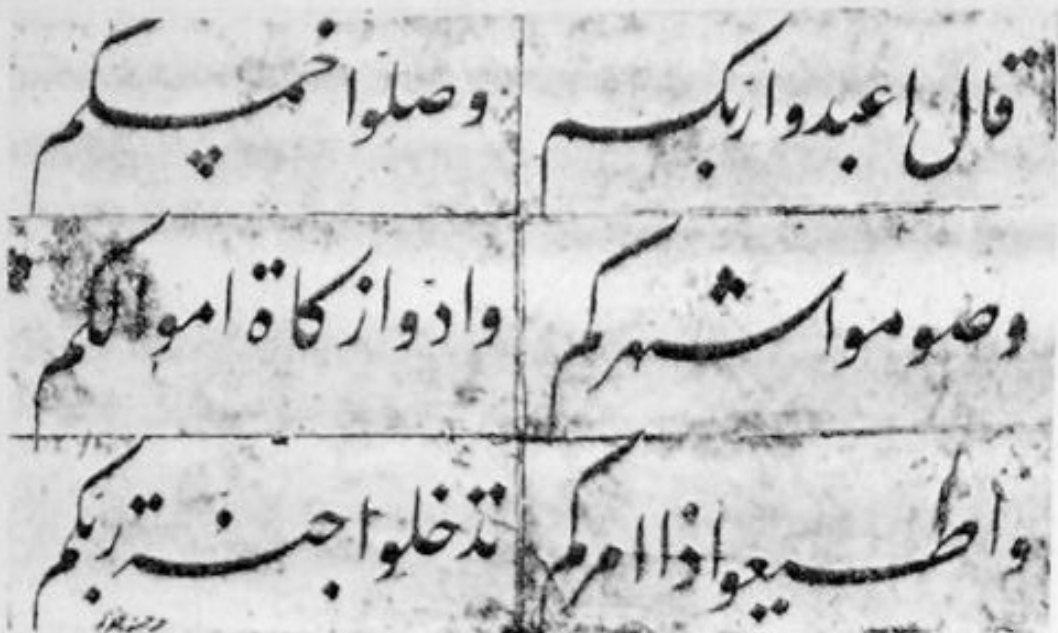 قال اعبدوا ربكم
وصلوا خمسكم
وصوموا شهركم
وادوا زكاة اموالكم
واطيعوا اذا امركم
تدخلوا جنة ربكم